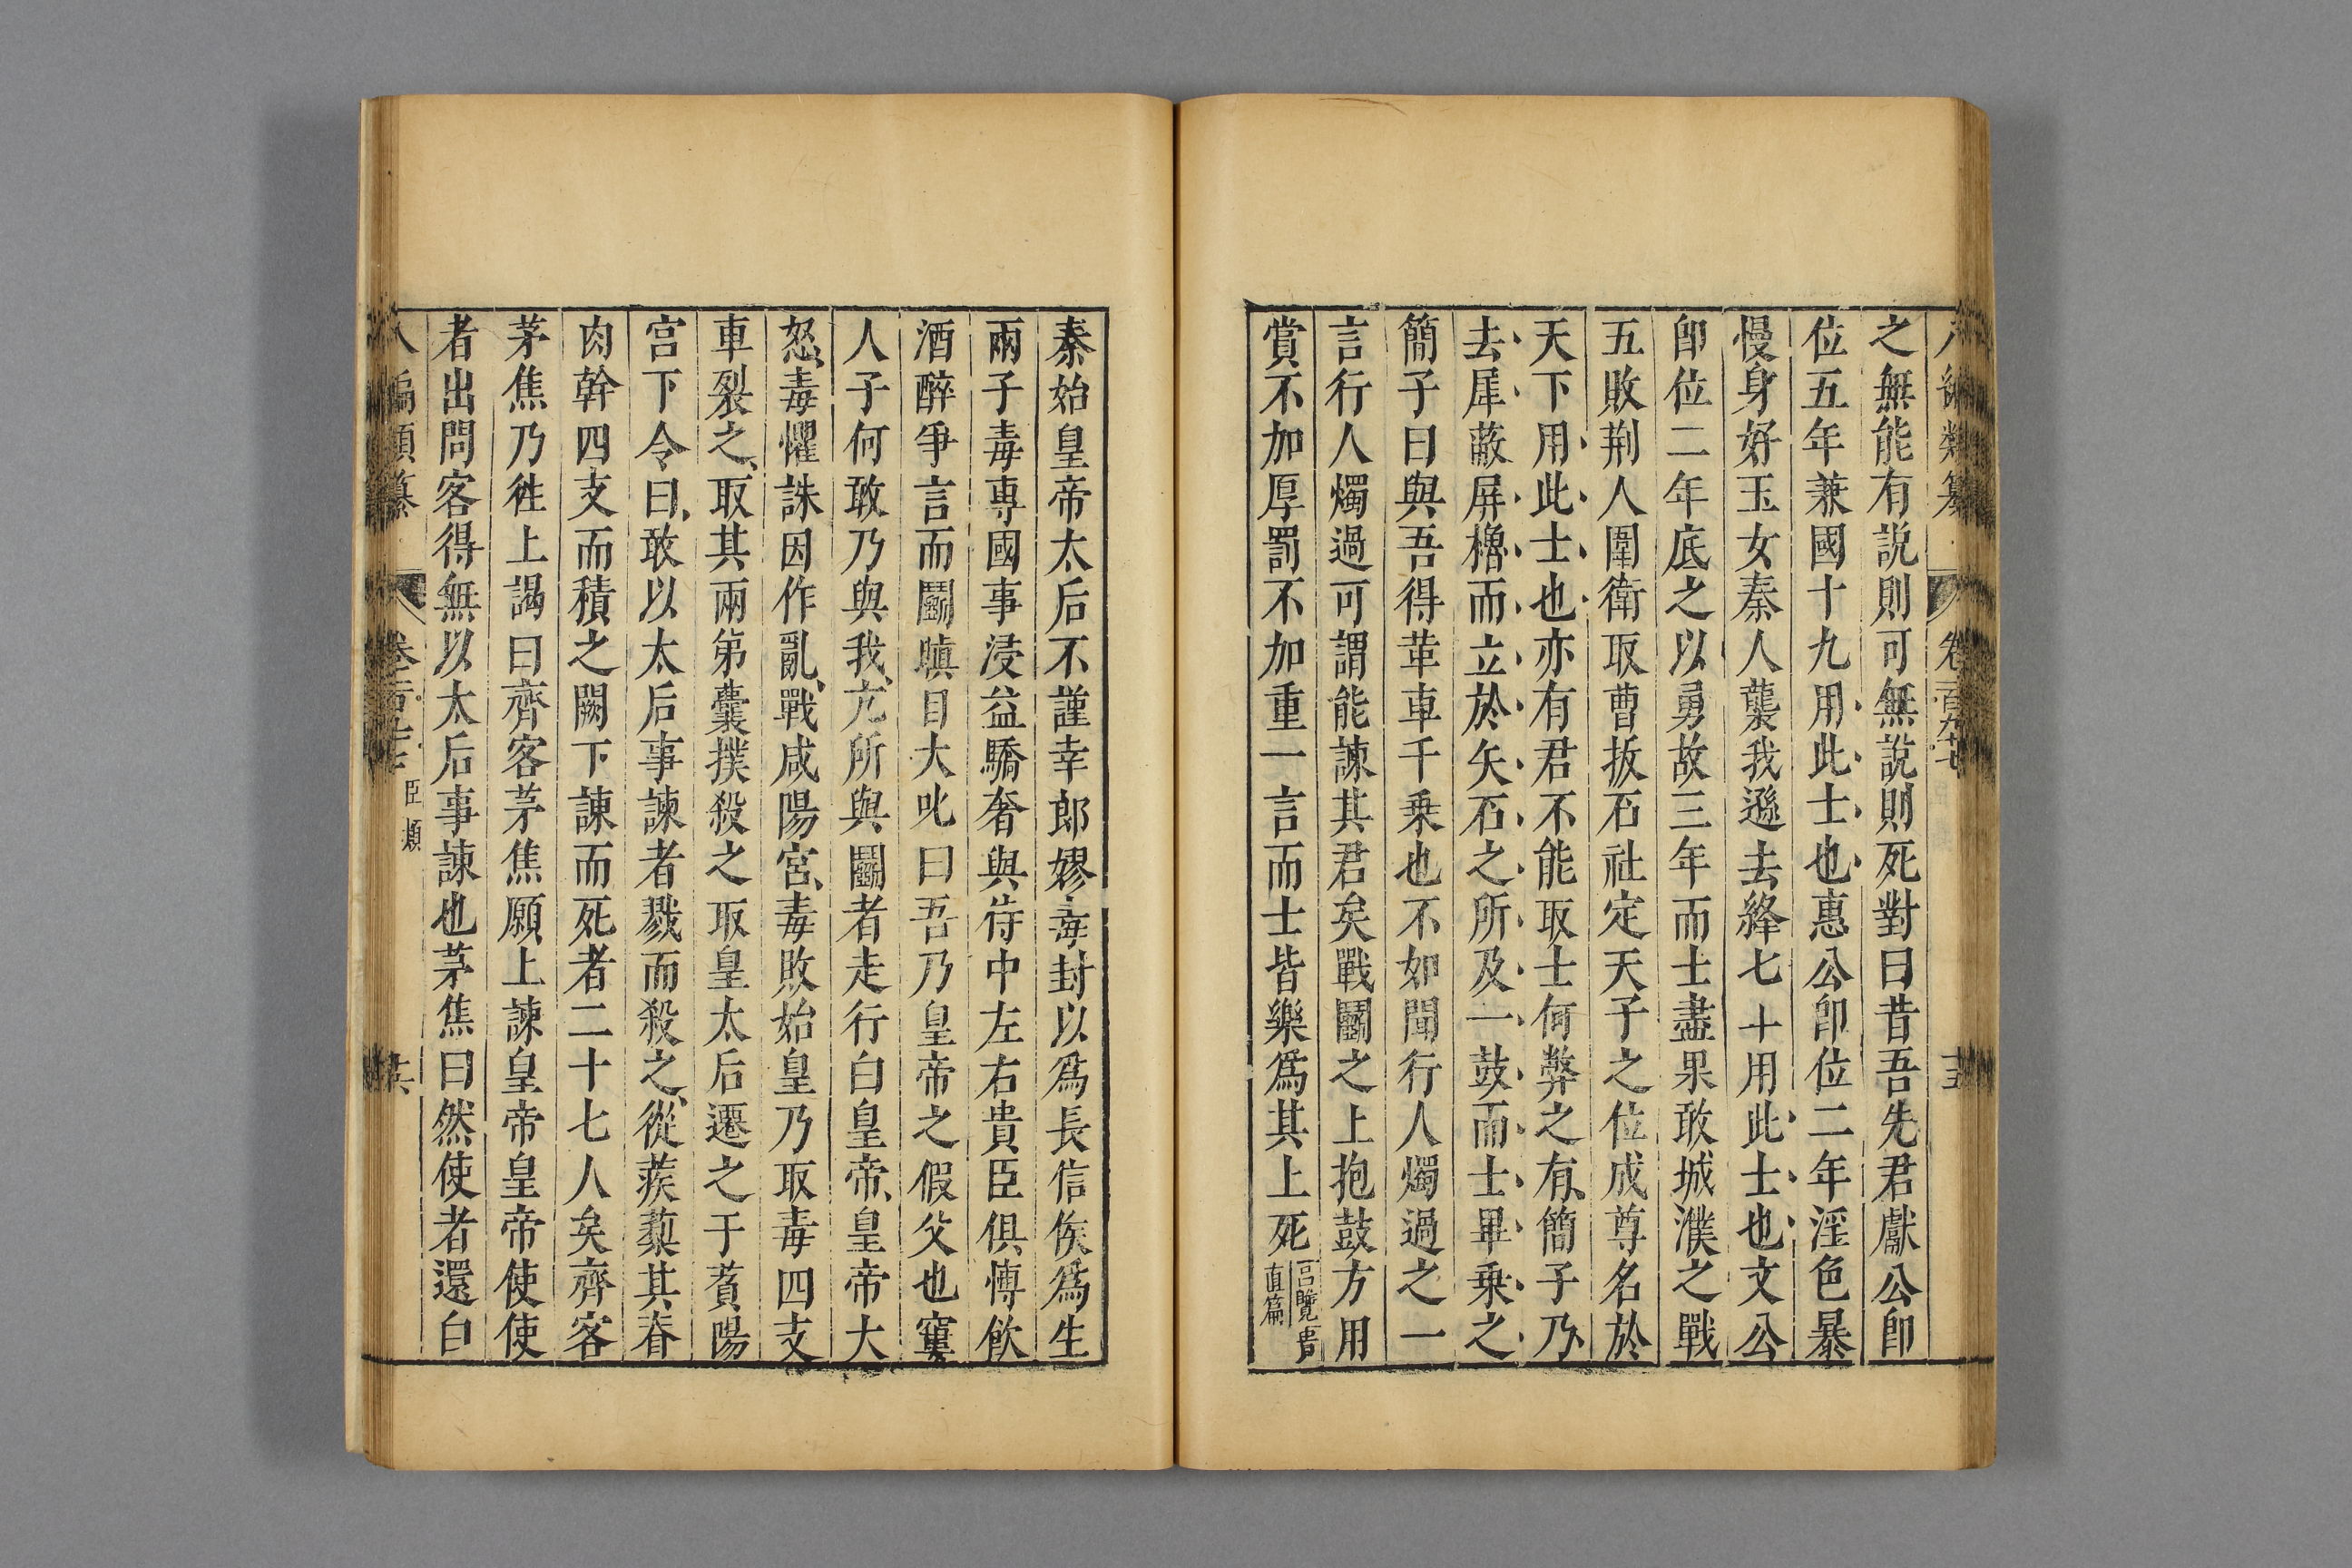 八編類纂 卷一百九十七 十五
之無能有説則可無說則死對曰昔吾先君獻公卽
位五年兼國十九用此士也惠公卽位二年淫色暴
慢身好玉女秦人襲我遜去絳七十用此士也文公
卽位二年底之以勇故三年而士盡果敢城濮之戰
五敗荆人圍衛取曹扳石社定天子之位成尊名於
天下用此士也亦有君不能取士何弊之有簡子乃
去犀蔽屏櫓而立於矢石之所及一鼓而士畢乗之
簡子曰與吾得革車千乗也不如聞行人燭過之一
言行人燭過可謂能諫其君矣戰鬭之上抱鼓方用
賞不加厚罰不加重一言而士皆樂爲其上死 呂覽貴直篇
秦始皇帝太后不謹幸郎嫪毐封以爲長信侯爲生
兩子毒專國事浸益驕奢與待中左右貴臣俱愽飲
酒醉爭言而鬭瞋目大叱曰吾乃皇帝之假父也窶
人子何敢乃與我亢所與鬭者走行白皇帝皇帝大
怒毒懼誅因作亂戰咸陽宮毒敗始皇乃取毒四支
車裂之取其兩弟囊撲殺之取皇太后遷之于萯陽
宮下令曰敢以太后事諫者戮而殺之從蒺蔾其脊
肉幹四支而積之闕下諫而死者二十七人矣齊客
茅焦乃徃上謁曰齊客茅焦願上諫皇帝皇帝使使
者出問客得無以太后事諫也茅焦曰然使者還白
八編類纂 卷一百九十七 臣類 十六